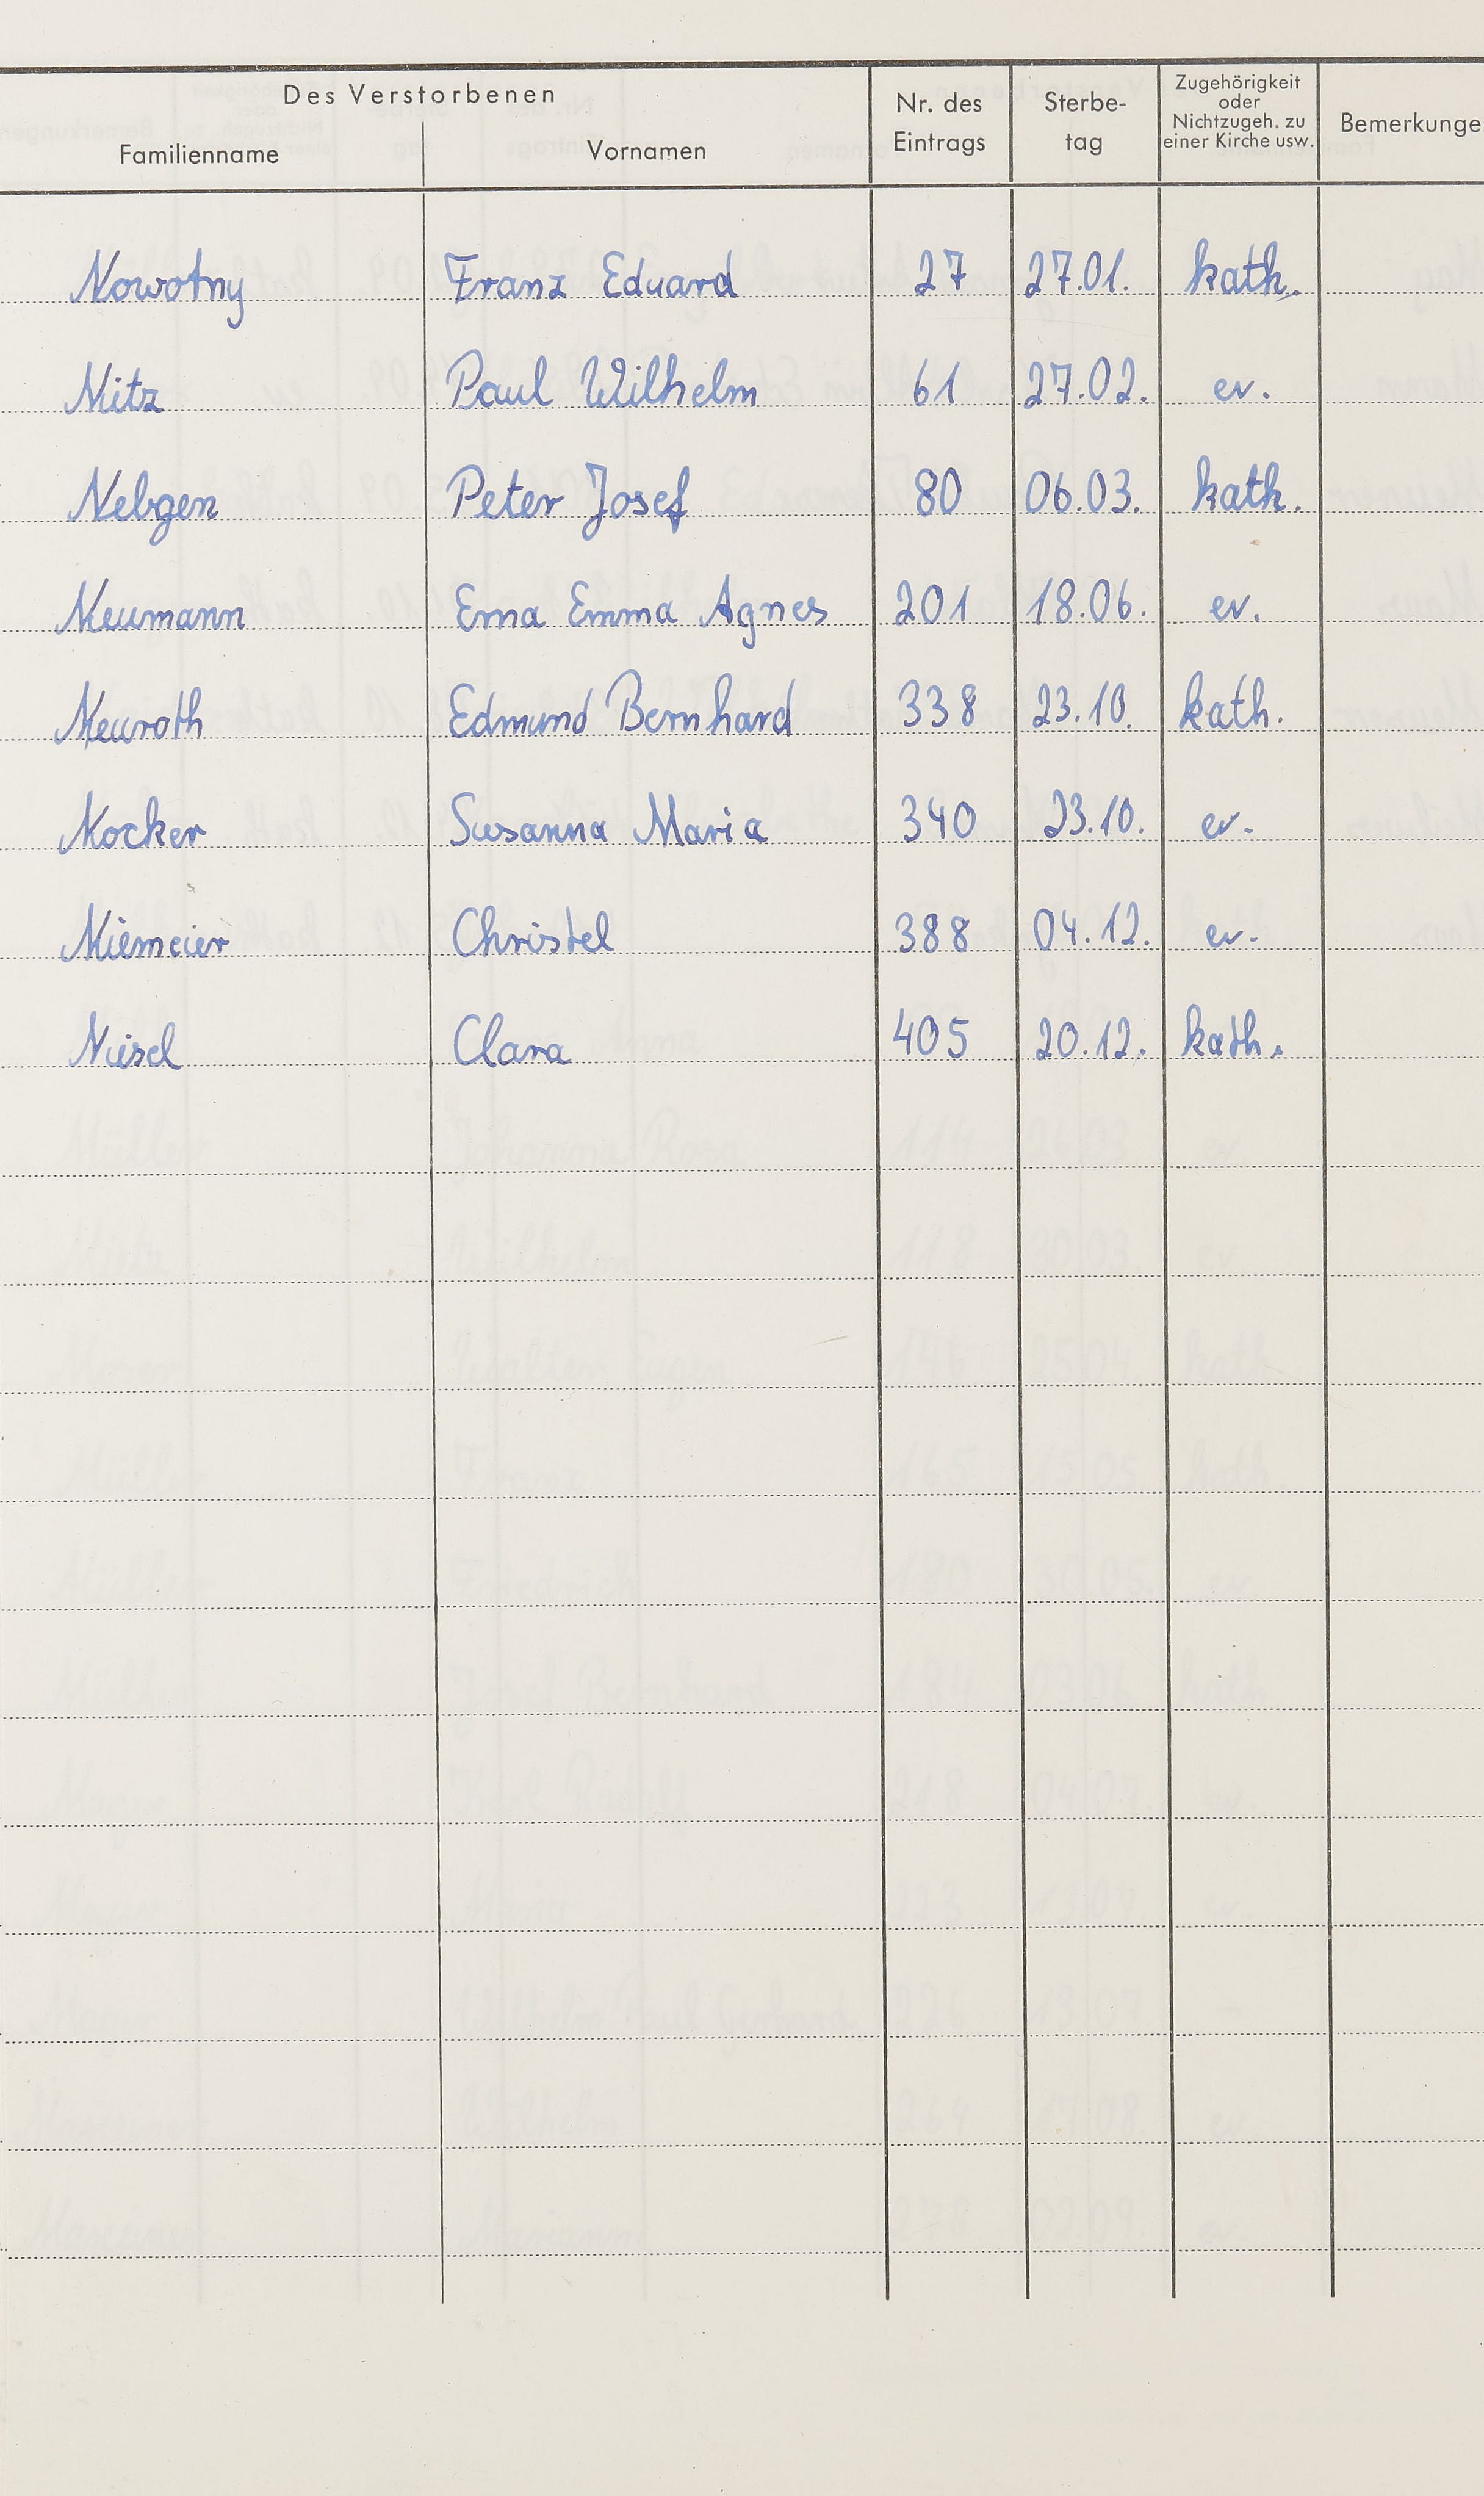 Des Verstorbenen
Familienname Vornamen Nr. des Eintrags Sterbe-tag Zugehörigkeit oder Nichtzugeh. zu einer Kirche usw. Bemerkunge
Nowotny Franz Eduard 27 27.01. kath.
Nitz Paul Wilhelm 61 27.02. ev.
Nebgen Peter Josef 80 06.03. kath.
Neumann Erna Emma Agnes 201 18.06. ev.
Neuroth Edmund Bernhard 338 23.10. kath.
Nocker Susanna Maria 340 23.10. ev.
Niemeier Christel 388 04.12. ev.
Clara 405 20.12. kath.